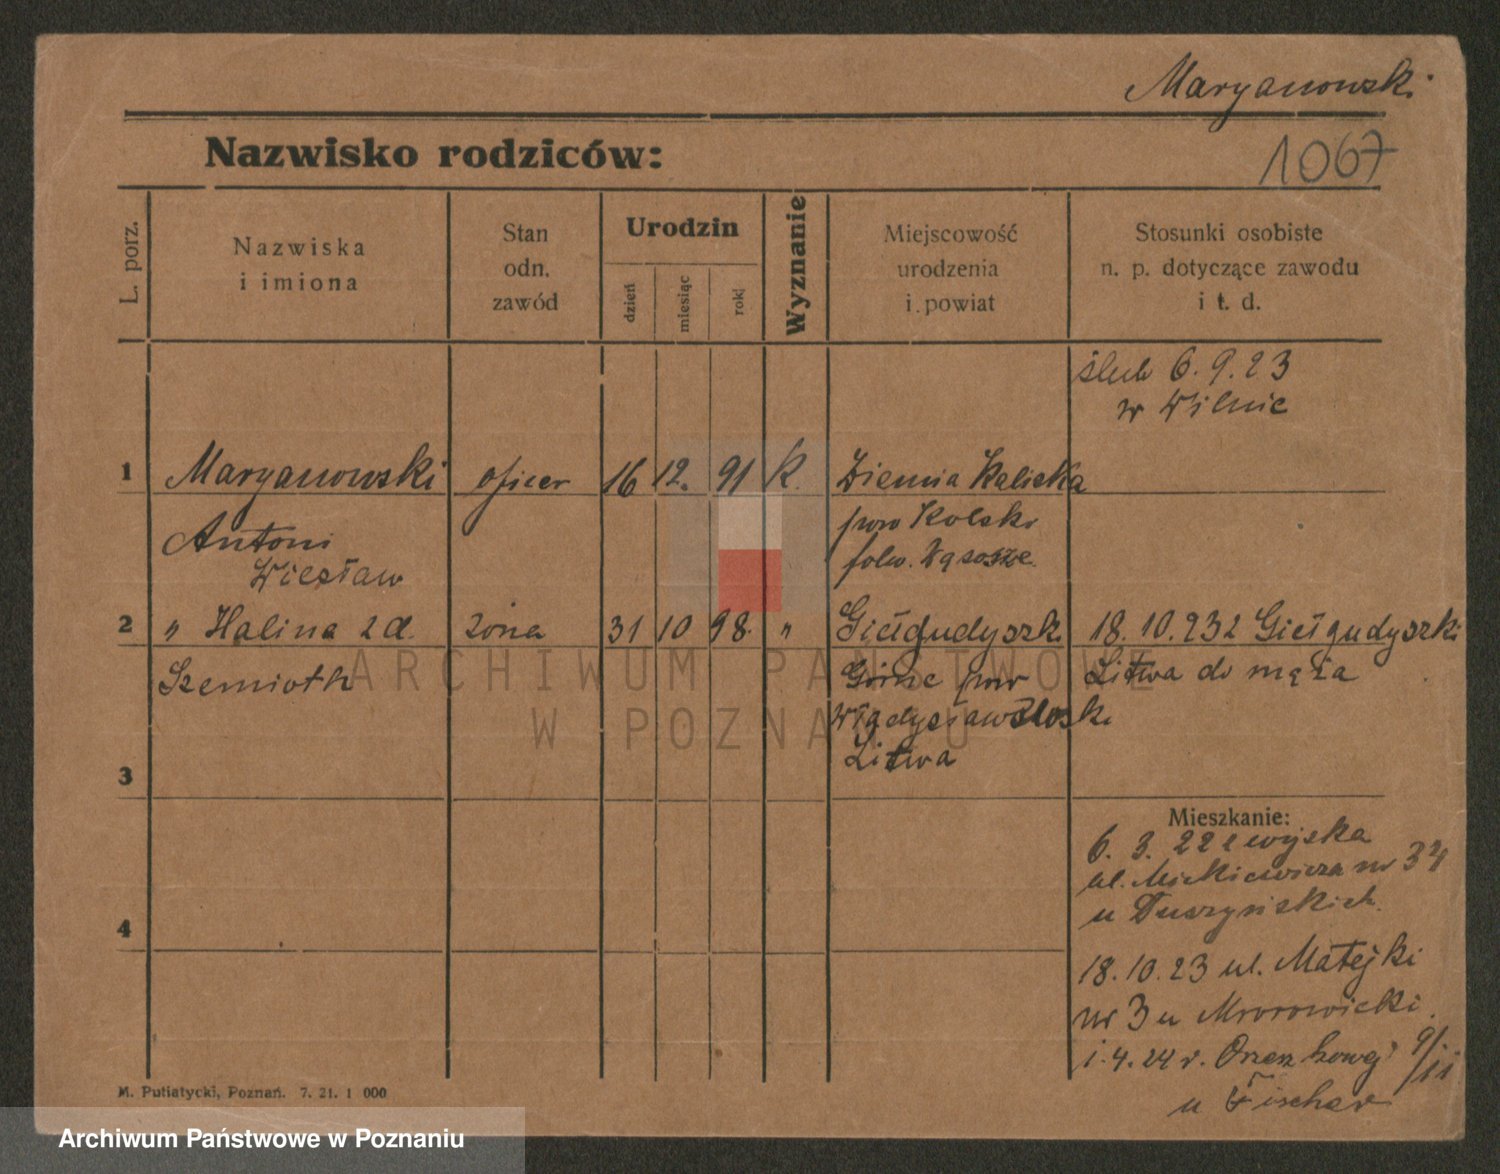 Maryanowski
Nazwisko rodziców:
1067
L. porz.
Nazwiska
i imiona
Stan
odn.
zawód
Urodzin
dzień
miesiąc
rok
Wyznanie
Miejscowość
urodzenia
i powiat
Stosunki osobiste
n. p. dotyczące zawodu
i t. d.
ślub 6.9.23
w Wilnie
1 Maryanowski oficer 16 12. 91 K. Ziemia Kaliska
Antoni pow Kolski
Wiesław folw. Wąsosze
2 " Halina z d. żona 31 10 98. " Giełgudyszk. 18.10.23 z Giełgudyszki
Szemioth Górne pow Litwa do męża
Władysławowsk.
Litwa
3
Mieszkanie:
6. 3. 22 z wojska
ul. Mickiewicza nr 34
u Tuszyńskich
4
18.10.23 ul. Matejki
nr 3 u Mrorowicki
1.4.24 r. Orzeszkowej 9/11
u Fischer
M. Putiatycki, Poznań. 7. 21. 1 000
ARCHIWUM PAŃSTWOWE
W POZNANIU
Archiwum Państwowe w Poznaniu